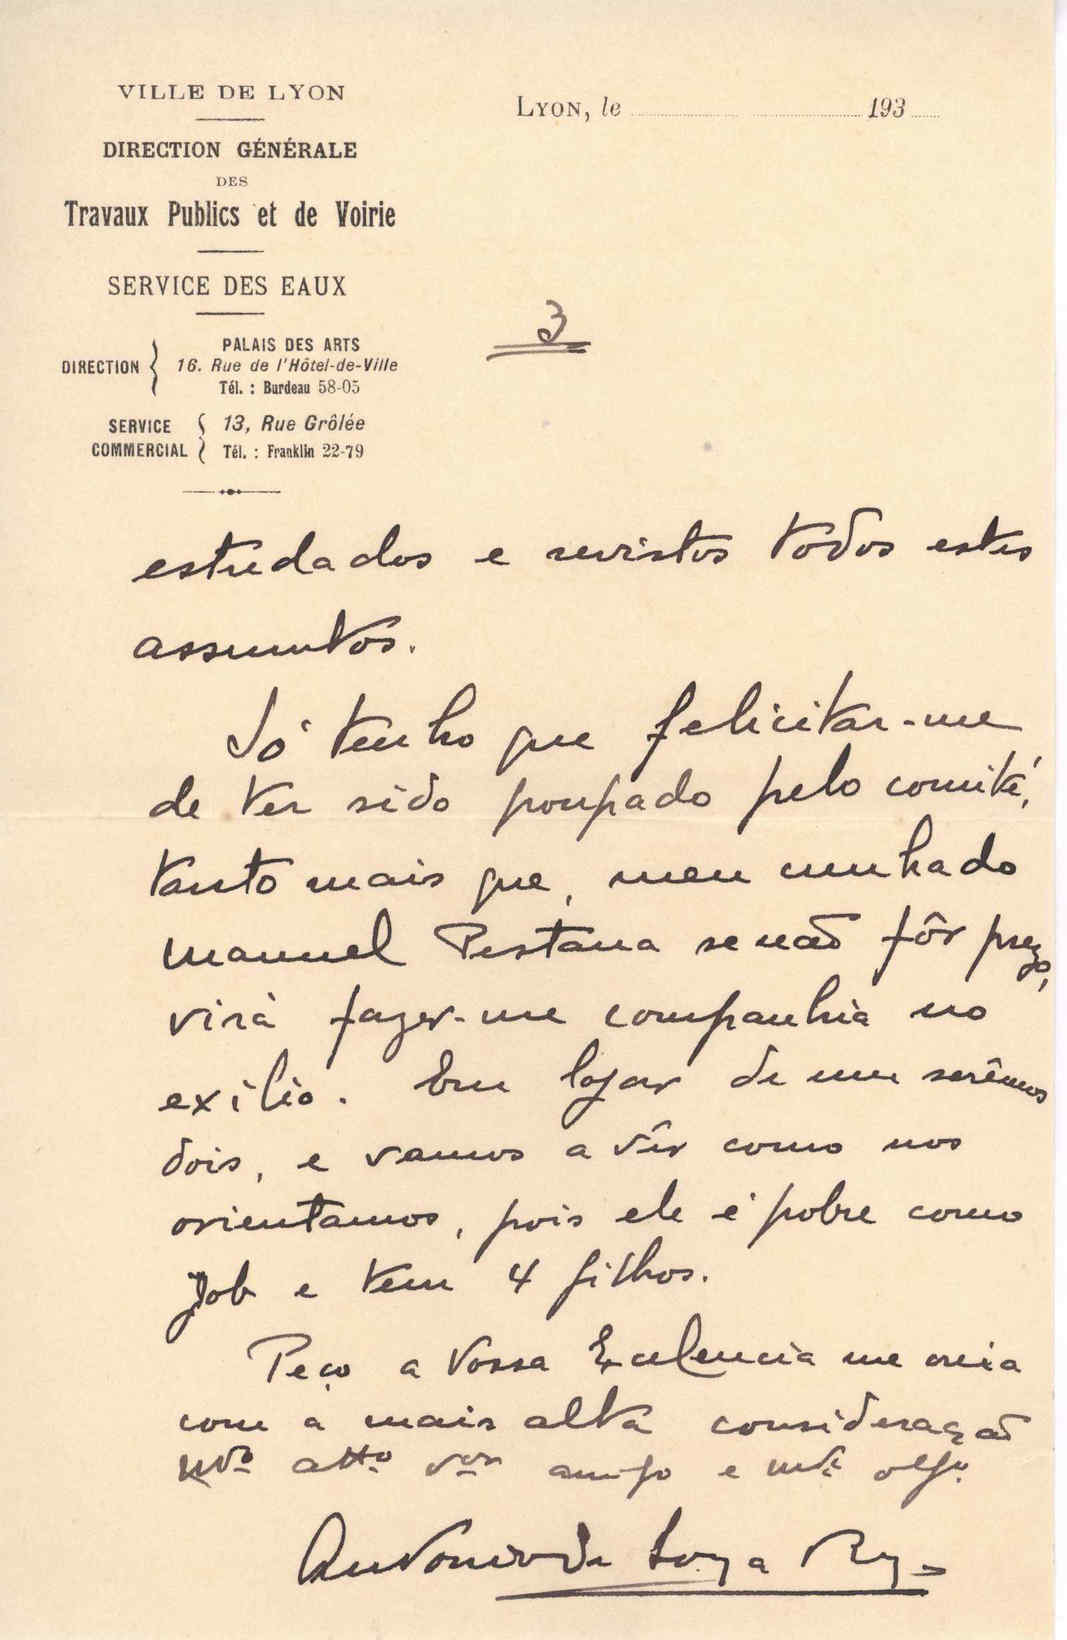 VILLE DE LYON
DIRECTION GÉNÉRALE
DES
Travaux Publics et de Voirie
SERVICE DES EAUX
DIRECTION
PALAIS DES ARTS
16. Rue de l'Hôtel-de-Ville
Tél. : Burdeau 58-05
SERVICE COMMERCIAL
13, Rue Grôlée
Tél. : Franklin 22-79
LYON, le 193
3
estudados e revistos todos estes
assumtos.
Só tenho que felicitar-me
de ter sido poupado pelo comité,
tanto mais que, meu cunhado
Manuel Pestana se não fôr prezo,
virà fazer-me companhia no
exilio. Em logar de um serêmos
dois, e vamos a vêr como nos
orientamos, pois ele é pobre como
Job e tem 4 filhos.
Peço a Vossa Excelencia me creia
com a mais alta consideração
mto atto vor amigo e mto
Antonio de